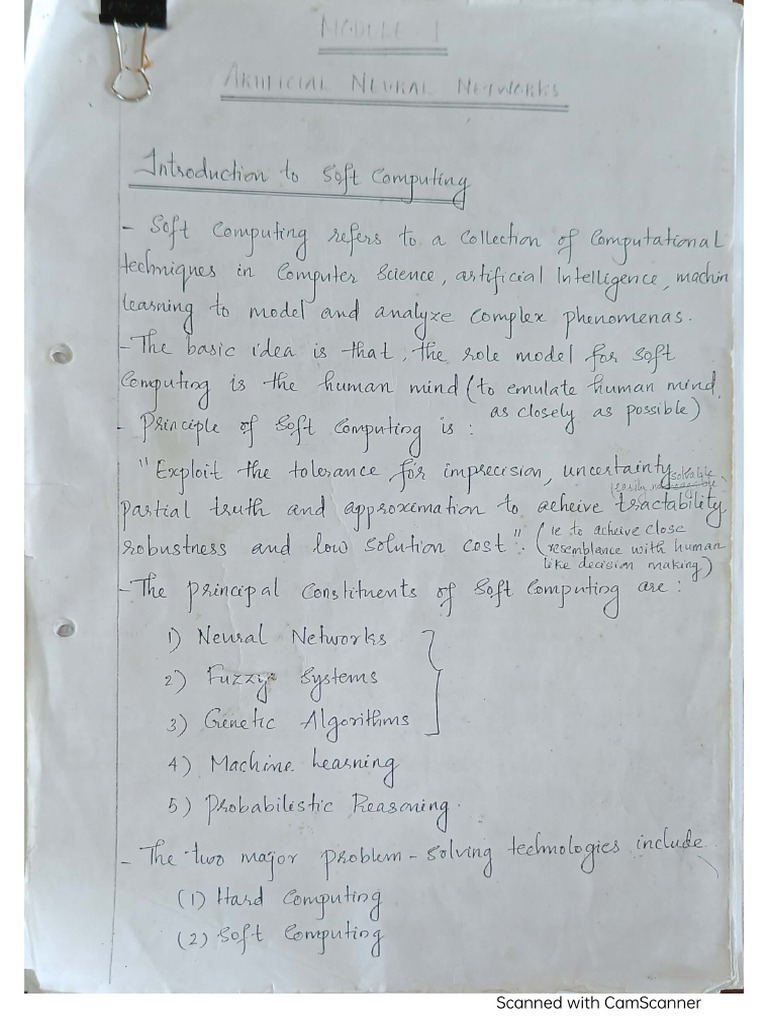 MODULE 1
ARTIFICIAL NEURAL NETWORKS
Introduction to Soft Computing
- Soft Computing refers to a collection of Computational
techniques in Computer Science, artificial Intelligence, machin
learning to model and analyze complex phenomenas.
- The basic idea is that, the role model for soft
Computing is the human mind (to emulate human mind
as closely as possible)
- Principle of Soft Computing is :
"Exploit the tolerance for imprecision, uncertainty
solvable
(easily
partial truth and approximation to acheive tractability,
robustness and low solution cost".
(ie to acheive close
resemblance with human
like decision making)
- The principal Constituents of Soft Computing are :
1) Neural Networks
2) Fuzzy Systems
3) Genetic Algorithms
4) Machine Learning
5) Probabilistic Reasoning.
- The two major problem - solving technologies include
(1) Hard Computing
(2) Soft Computing
Scanned with CamScanner